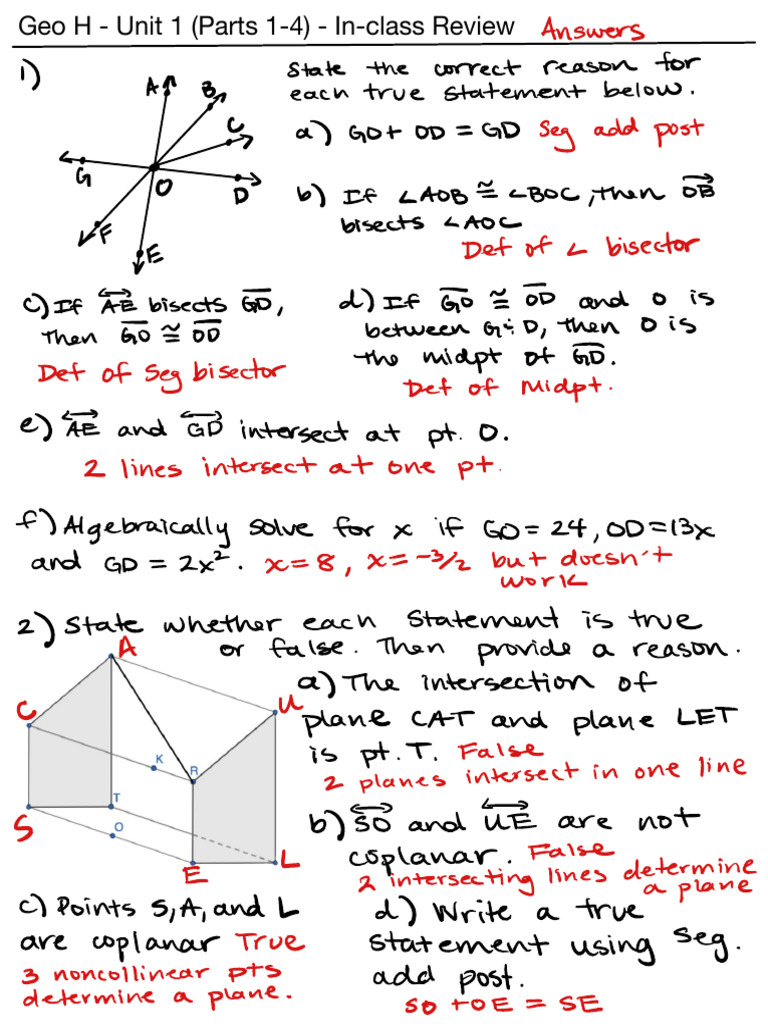 Geo H - Unit 1 (Parts 1-4) - In-class Review Answers
1)
State the correct reason for
each true statement below.
A
B
C
G
O
D
F
E
a) GO + OD = GD Seg add post
b) If ∠AOB ≅ ∠BOC, then OB
bisects ∠AOC
Def of ∠ bisector
c) If AE bisects GD,
then GO ≅ OD
Def of Seg bisector
d) If GO ≅ OD and O is
between G & D, then O is
the midpt of GD.
Def of Midpt.
e) AE and GD intersect at pt. O.
2 lines intersect at one pt.
f) Algebraically solve for x if GO = 24, OD = 13x
and GD = 2x². x = 8, x = -3/2 but doesn't
work
2) State whether each statement is true
or false. Then provide a reason.
A
C
U
K
R
T
S
O
E
L
a) The intersection of
plane CAT and plane LET
is pt. T. False
2 planes intersect in one line
b) SO and UE are not
coplanar. False
2 intersecting lines determine
a plane
c) Points S, A, and L
are coplanar True
3 noncollinear pts
determine a plane.
d) Write a true
statement using seg.
add post.
SO + OE = SE